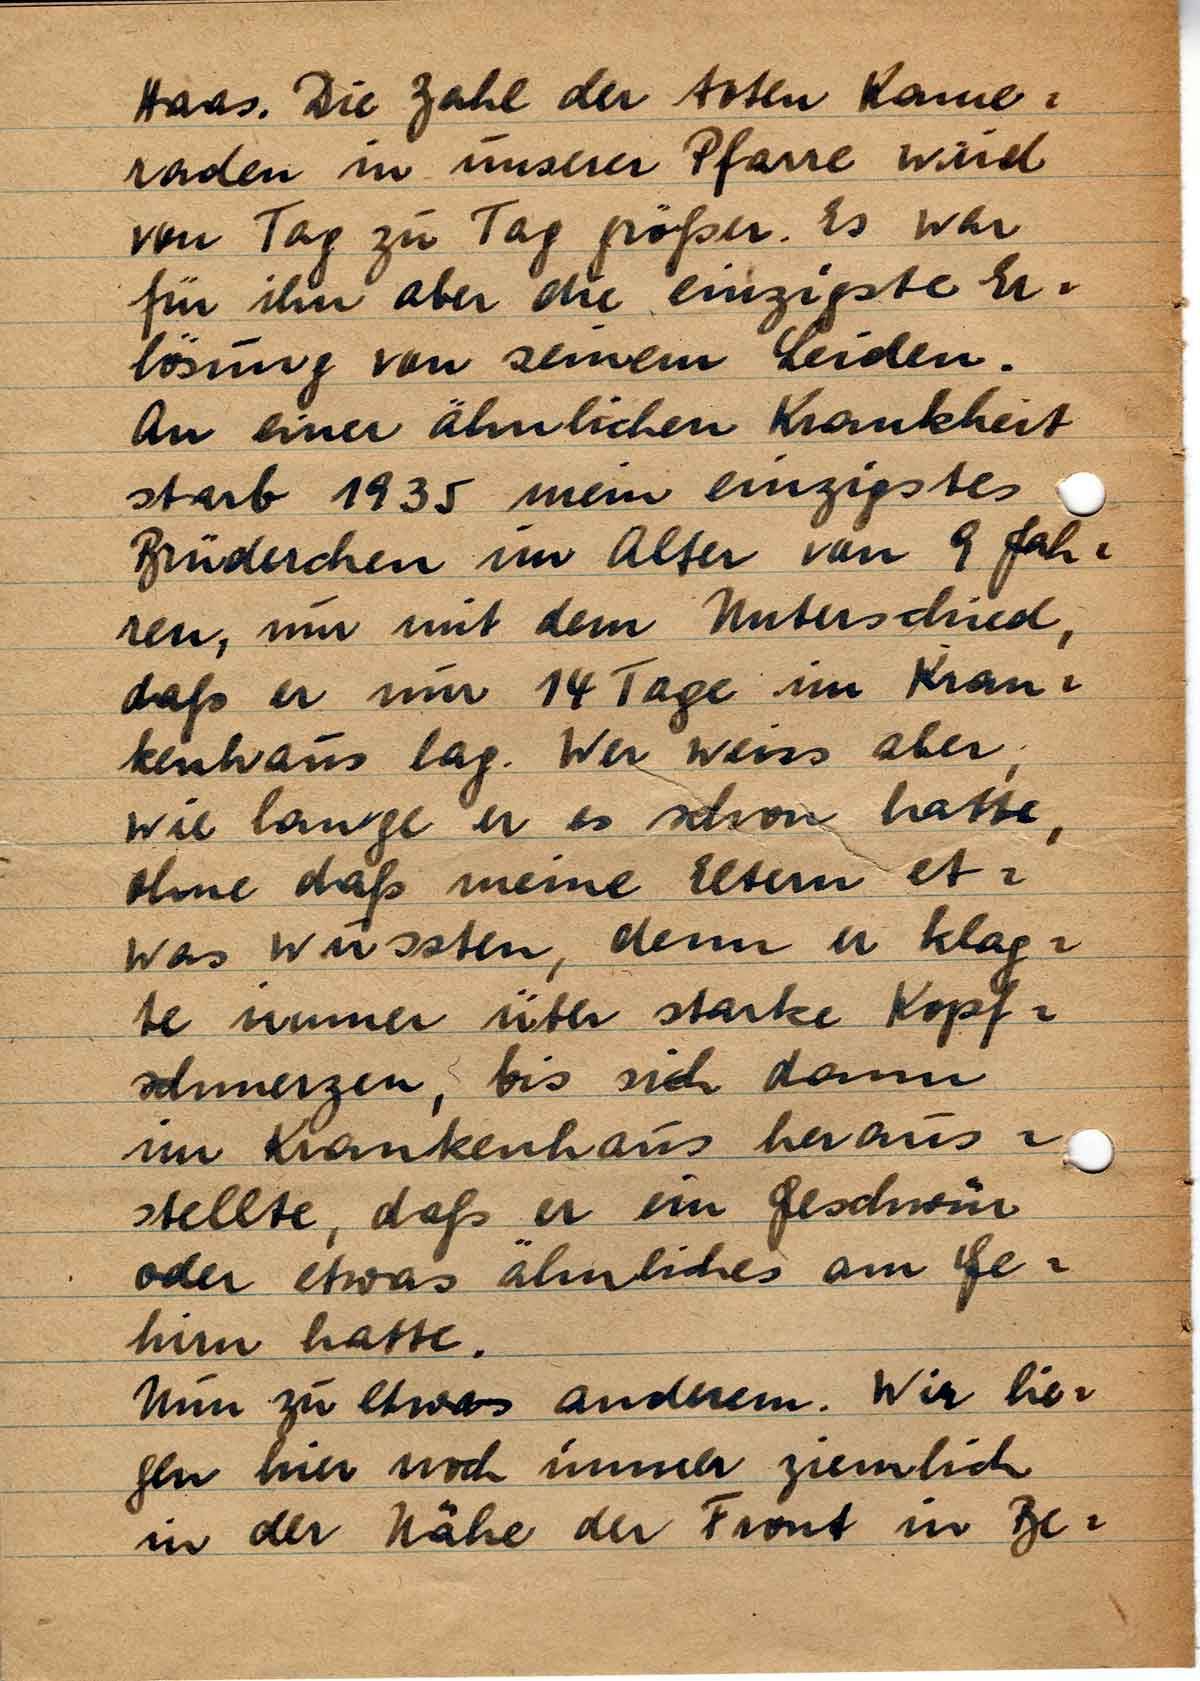 Haas. Die Zahl der toten Kame-
raden in unserer Pfarre wird
von Tag zu Tag größer. Es war
für ihn aber die einzigste Er-
lösung von seinem Leiden.
An einer ähnlichen Krankheit
starb 1935 mein einzigstes
Brüderchen im Alter von 9 Jah-
ren, nur mit dem Unterschied,
daß er nur 14 Tage im Kran-
kenhaus lag. Wer weiss aber,
wie lange er es schon hatte,
ohne daß meine Eltern et-
was wussten, denn er klag-
te immer über starke Kopf-
schmerzen, bis sich dann
im Krankenhaus heraus-
stellte, daß er ein Geschwür
oder etwas ähnliches am Ge-
hirn hatte.
Nun zu etwas anderem. Wir lie-
gen hier noch immer ziemlich
in der Nähe der Front in Be-